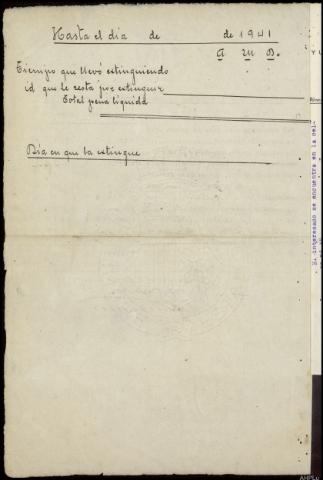 Hasta el día de de 1941
A M D.
Tiempo que llevó extinguiendo
id que le resta por extinguir
Total pena liquida
Día en que la extingue
El interesado se encuentra en la
AHPLu